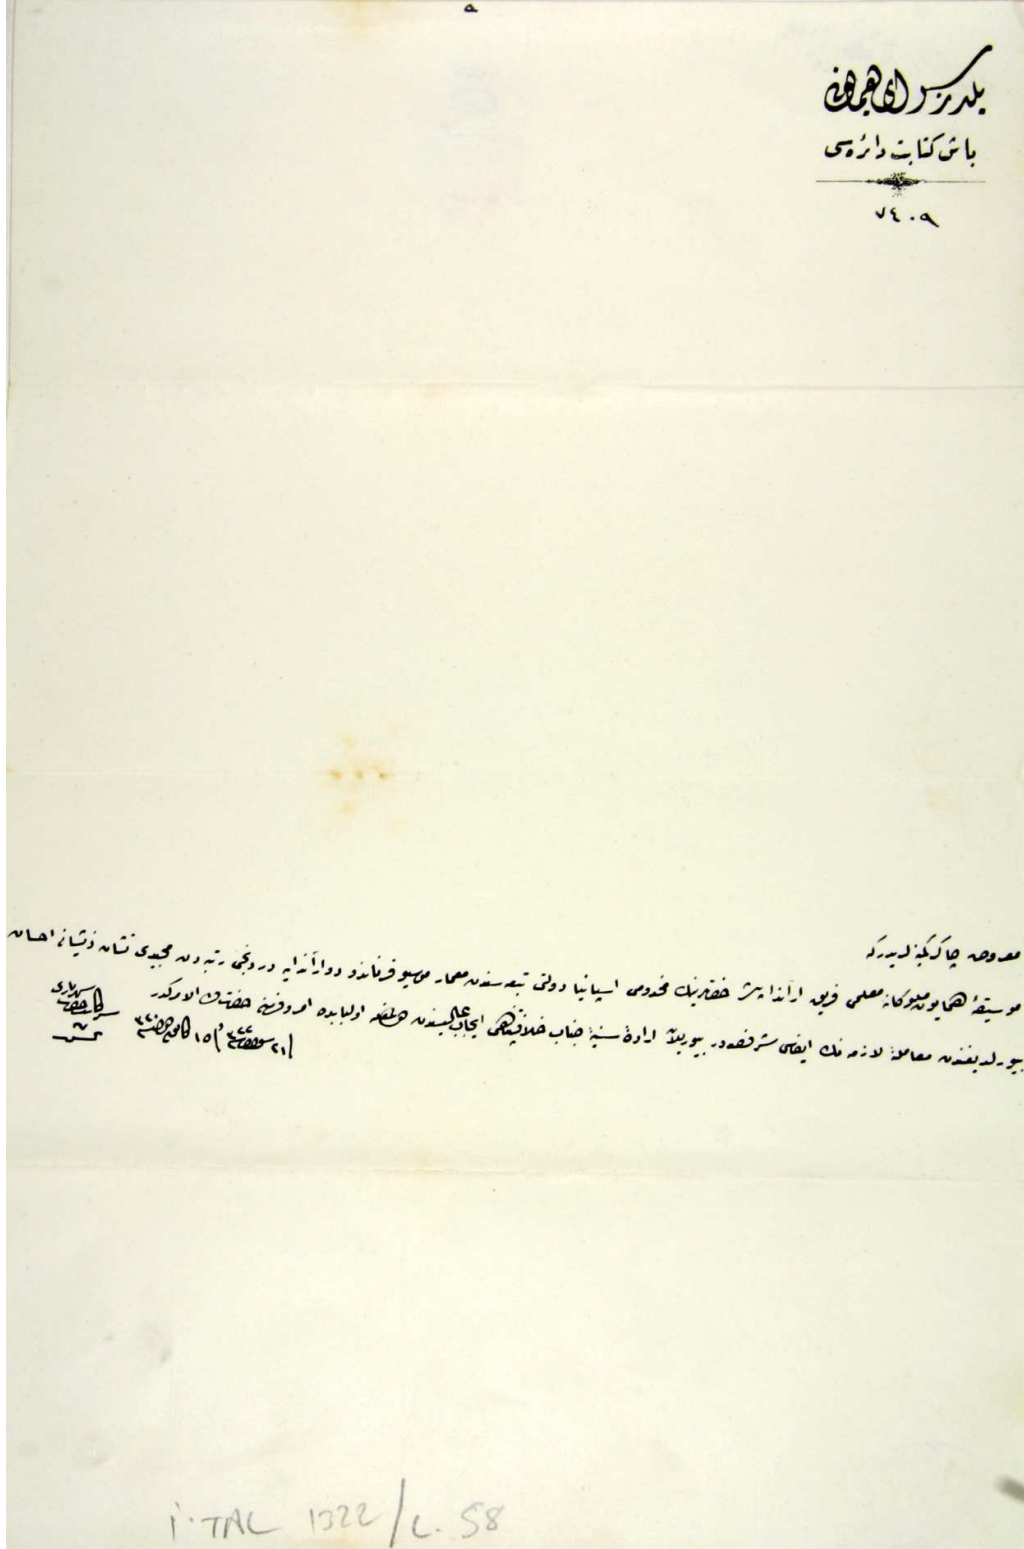 يلديز سراى همايونى
باش كتابت دائره‌سى
٧٤٠٩
معروض چاكر كمينه‌لريدركه
موسيقهٔ همايون ملوكانه معلمى فريق اراندا پاشا حضرتلرينك مخدومى اسپانيا دولتى تبعه‌سندن معمار موسيو فرناندو دو اراندايه دردنجى رتبه‌دن مجيدى نشان ذيشانى احسان
بيورلديغندن معاملهٔ لازمه‌نك ايفاسى شرفصدور بيوريلان ارادهٔ سنيهٔ جناب خلافتپناهى ايجاب عاليسندن اولمغله اولبابده امر و فرمان حضرت ولى الامركدر
٢١ ٣٢٢ ١٥ ٣٢٠
İ.TAL 1322/L.58